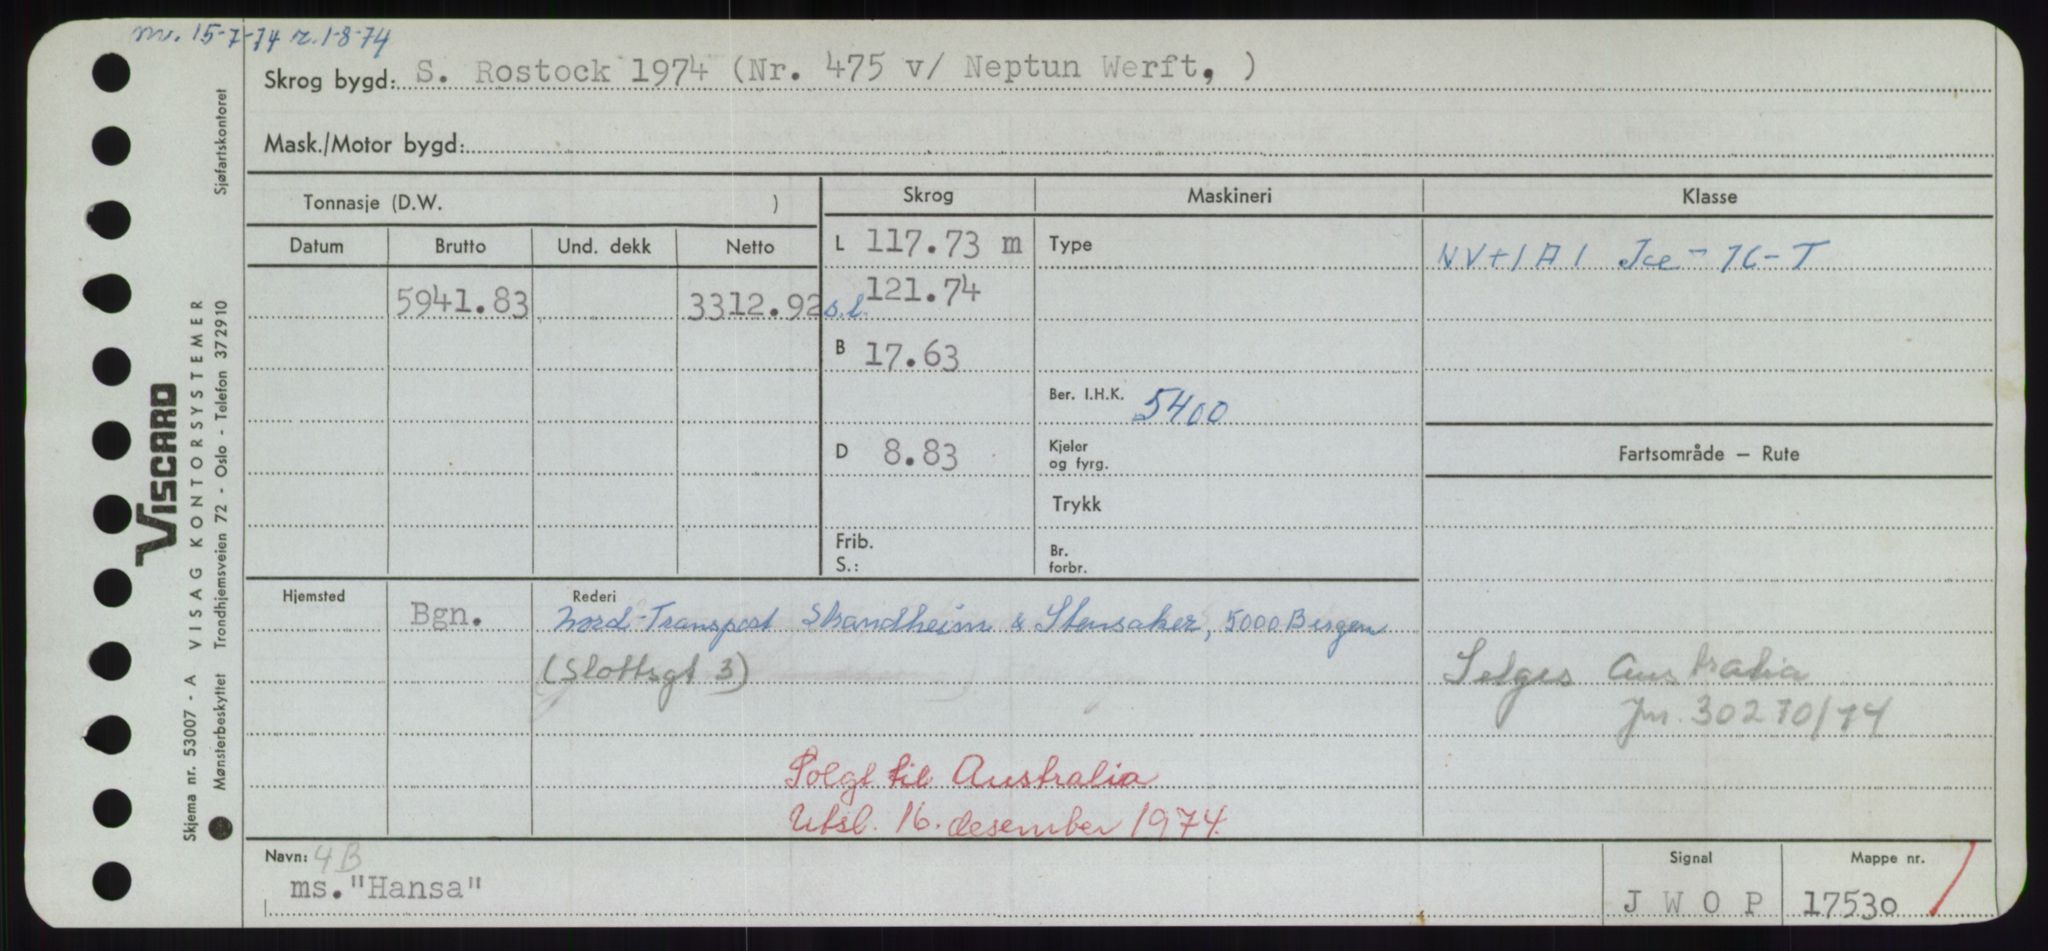 m. 15-7-74 r. 1-8-74
Skrog bygd: S. Rostock 1974 (Nr. 475 v/ Neptun Werft, )
Mask./Motor bygd:
Tonnasje (D.W. )
Skrog
Maskineri
Klasse
Datum Brutto Und. dekk Netto
L 117.73 m
Type
NV+1A1 Ice-1C-T
5941.83 3312.92
s.l. 121.74
B 17.63
Ber. I.H.K. 5400
D 8.83
Kjeler
og fyrg.
Fartsområde — Rute
Trykk
Frib.
S.:
Br.
forbr.
Hjemsted Bgn.
Rederi
Nord-Transport Strandheim & Stensaker, 5000 Bergen
(Slottsgt 3)
Selges Australia
Jnr. 30270/74
Solgt til Australia
Utsl. 16. desember 1974.
Navn: 4B
ms. "Hansa"
Signal
J W O P
Mappe nr.
17530
Skjema nr. 53007 - A VISAG KONTORSYSTEMER
VISCARD
Mønsterbeskyttet Trondhjemsveien 72 - Oslo - Telefon 372910 Sjøfartskontoret